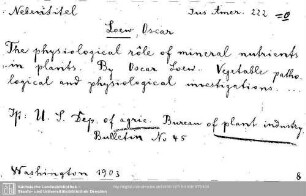 Nebentitel Jus Amer. 222 = 0
Loew, Oscar
The physiological rôle of mineral nutrients
in plants. By Oscar Loew. Vegetable patho-
logical and physiological investigations. ...
Jp: U. S. Dep. of agric. Bureau of plant industry
Bulletin No 45
Washington 1903
8
Sächsische Landesbibliothek -
Staats- und Universitätsbibliothek Dresden